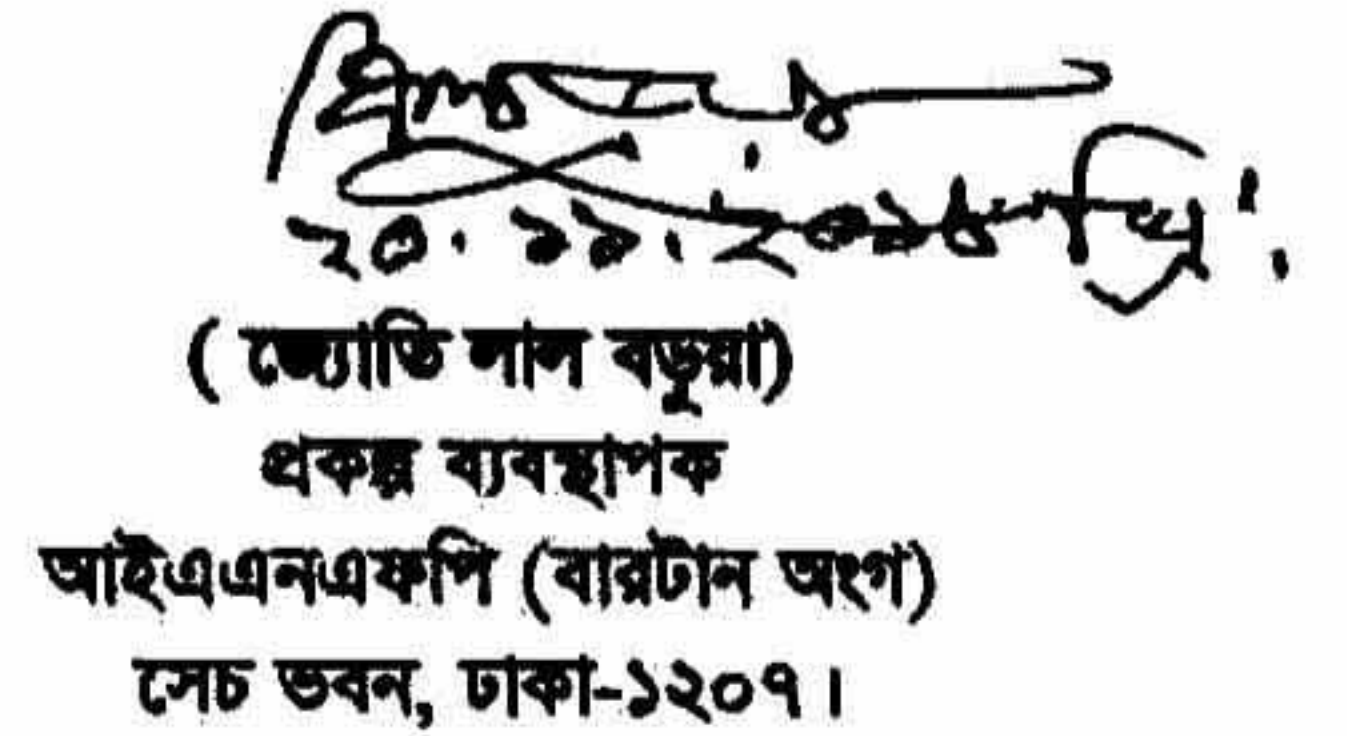 ২০.১১.২০১৪ খ্রি:
( জ্যোতি লাল বড়ুয়া)
প্রকল্প ব্যবস্থাপক
আইএএনএফপি (বারটান অংগ)
সেচ ভবন, ঢাকা-১২০৭।